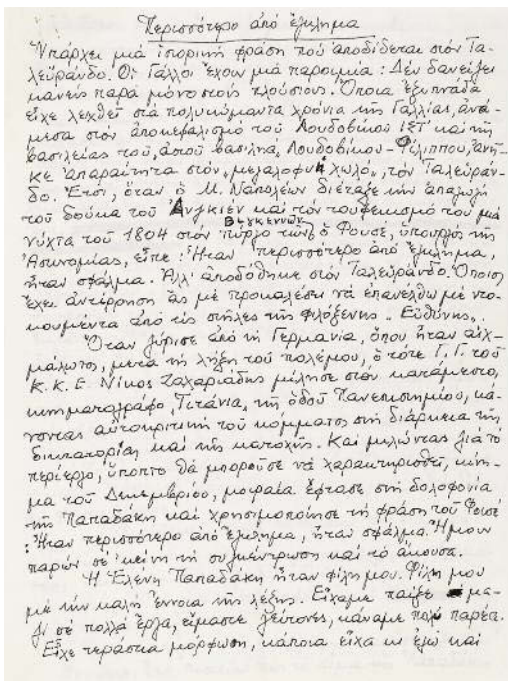 Περισσότερο ἀπό ἔγκλημα
Ὑπάρχει μιά ἱστορική φράση πού ἀποδίδεται στόν Τα-
λεϋράνδο. Οἱ Γάλλοι ἔχουν μιά παροιμία: Δέν δανείζει
κανείς παρά μόνο στούς πλούσιους. Ὅποια ἐξυπνάδα
εἶχε λεχθεῖ στά πολυκύμαντα χρόνια τῆς Γαλλίας, ἀνά-
μεσα στόν ἀποκεφαλισμό τοῦ Λουδοβίκου ΙΣΤ΄ καί τῆς
βασιλείας τοῦ ἀστοῦ βασιληᾶ Λουδοβίκου-Φίλιππου, ἀνῆ-
κε ἀπαραίτητα στόν „μεγαλοφυῆ χωλό", τόν Ταλεϋράν-
δο. Ἔτσι, ὅταν ὁ Μ. Ναπολέων διέταξε τήν ἀπαγωγή
τοῦ δούκα τοῦ Ἀνγκιέν καί τόν τουφεκισμό του μιά
νύχτα τοῦ 1804 στόν πύργο τῶν Βεγκεννῶν ὁ Φουσέ, ὑπουργός τῆς
Ἀστυνομίας, εἶπε: Ἦταν περισσότερο ἀπό ἔγκλημα,
ἦταν σφάλμα. Ἀλλ' ἀποδόθηκε στόν Ταλεϋράνδο. Ὅποιος
ἔχει ἀντίρρηση ἄς μέ προκαλέσει νά ἐπανέλθω μέ ντο-
κουμέντα ἀπό τίς στῆλες τῆς φιλόξενης „Εὐθύνης".
Ὅταν γύρισε ἀπό τή Γερμανία, ὅπου ἦταν αἰχ-
μάλωτος, μετά τή λήξη τοῦ πολέμου, ὁ τότε Γ.Γ. τοῦ
Κ.Κ.Ε. Νίκος Ζαχαριάδης μίλησε στόν κατάμεστο,
κινηματογράφο „Τιτάνια" τῆς ὁδοῦ Πανεπιστημίου, κά-
νοντας αὐτοκριτική τοῦ κόμματος στή διάρκεια τῆς
δικτατορίας καί τῆς κατοχῆς. Καί μιλώντας γιά τό
περίεργο, ὕποπτο θά μποροῦσε νά χαρακτηρισθεῖ, κίνη-
μα τοῦ Δεκεμβρίου, μοιραῖα ἔφτασε στή δολοφονία
τῆς Παπαδάκη καί χρησιμοποίησε τή φράση τοῦ Φουσέ
: Ἦταν περισσότερο ἀπό ἔγκλημα, ἦταν σφάλμα. Ἤμουν
παρών σέ 'κείνη τή συγκέντρωση καί τό ἄκουσα.
Ἡ Ἑλένη Παπαδάκη ἦταν φίλη μου. Φίλη μου
μέ τήν καλή ἔννοια τῆς λέξης. Εἴχαμε παίξει μα-
ζί σέ πολλά ἔργα, εἴμαστε γείτονες, κάναμε πολύ παρέα.
Εἶχε τεράστια μόρφωση, κάποια εἶχα κι ἐγώ καί